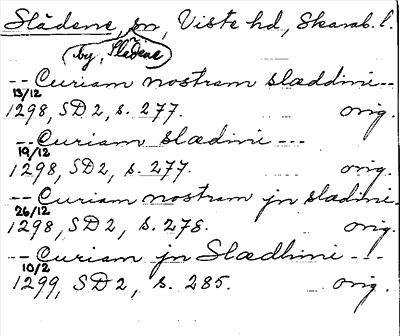 Slädene, sn, Viste hd, Skarab. l.
by, Slädene
-- Curiam nostram slæddini --
13/12
1298, SD 2, s. 277. orig.
-- Curiam slædini ---
19/12
1298, SD 2, s. 277. orig.
-- Curiam nostram jn slædini -
26/12
1298, SD 2, s. 278. orig.
-- Curiam jn Slædhini ---
10/2
1299, SD 2, s. 285. orig.